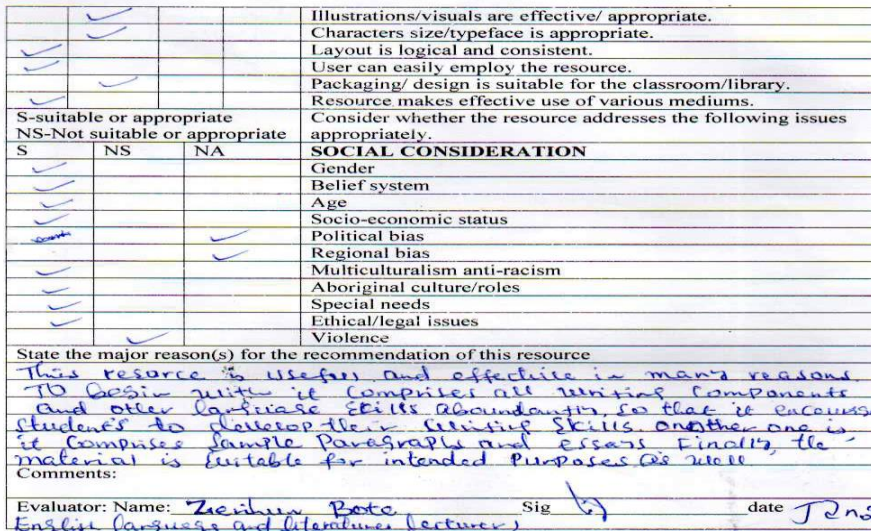 Illustrations/visuals are effective/ appropriate.
Characters size/typeface is appropriate.
Layout is logical and consistent.
User can easily employ the resource.
Packaging/ design is suitable for the classroom/library.
Resource makes effective use of various mediums.
S-suitable or appropriate
NS-Not suitable or appropriate
Consider whether the resource addresses the following issues
appropriately.
S NS NA SOCIAL CONSIDERATION
Gender
Belief system
Age
Socio-economic status
Political bias
Regional bias
Multiculturalism anti-racism
Aboriginal culture/roles
Special needs
Ethical/legal issues
Violence
State the major reason(s) for the recommendation of this resource
This resarce is usefull and effective in many reasons.
To begin with it comprises all writing components
and other language skills aboundantly, so that it
students to develop their writing skills. another one is
it comprises sample paragraphs and essays Finally, the
material is suitable for intended purposes as well
Comments:
Evaluator: Name: Zerihun Sig date
English language and literature lecturer)